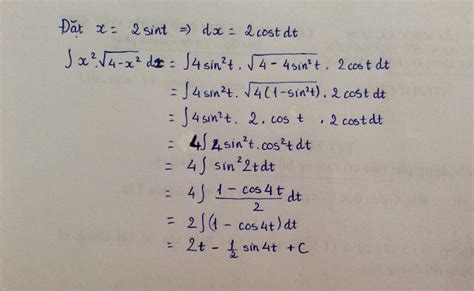 Đặt x = 2sint ⇒ dx = 2costdt
∫x².√4-x² dx = ∫4sin²t . √4-4sin²t . 2costdt
= ∫4sin²t . √4(1-sin²t) . 2costdt
= ∫4sin²t . 2 . cost . 2costdt
= 4∫4sin²t.cos²tdt
= 4∫sin²2tdt
= 4∫ (1-cos4t)/2 dt
= 2∫(1-cos4t)dt
= 2t - 1/2 sin4t + C